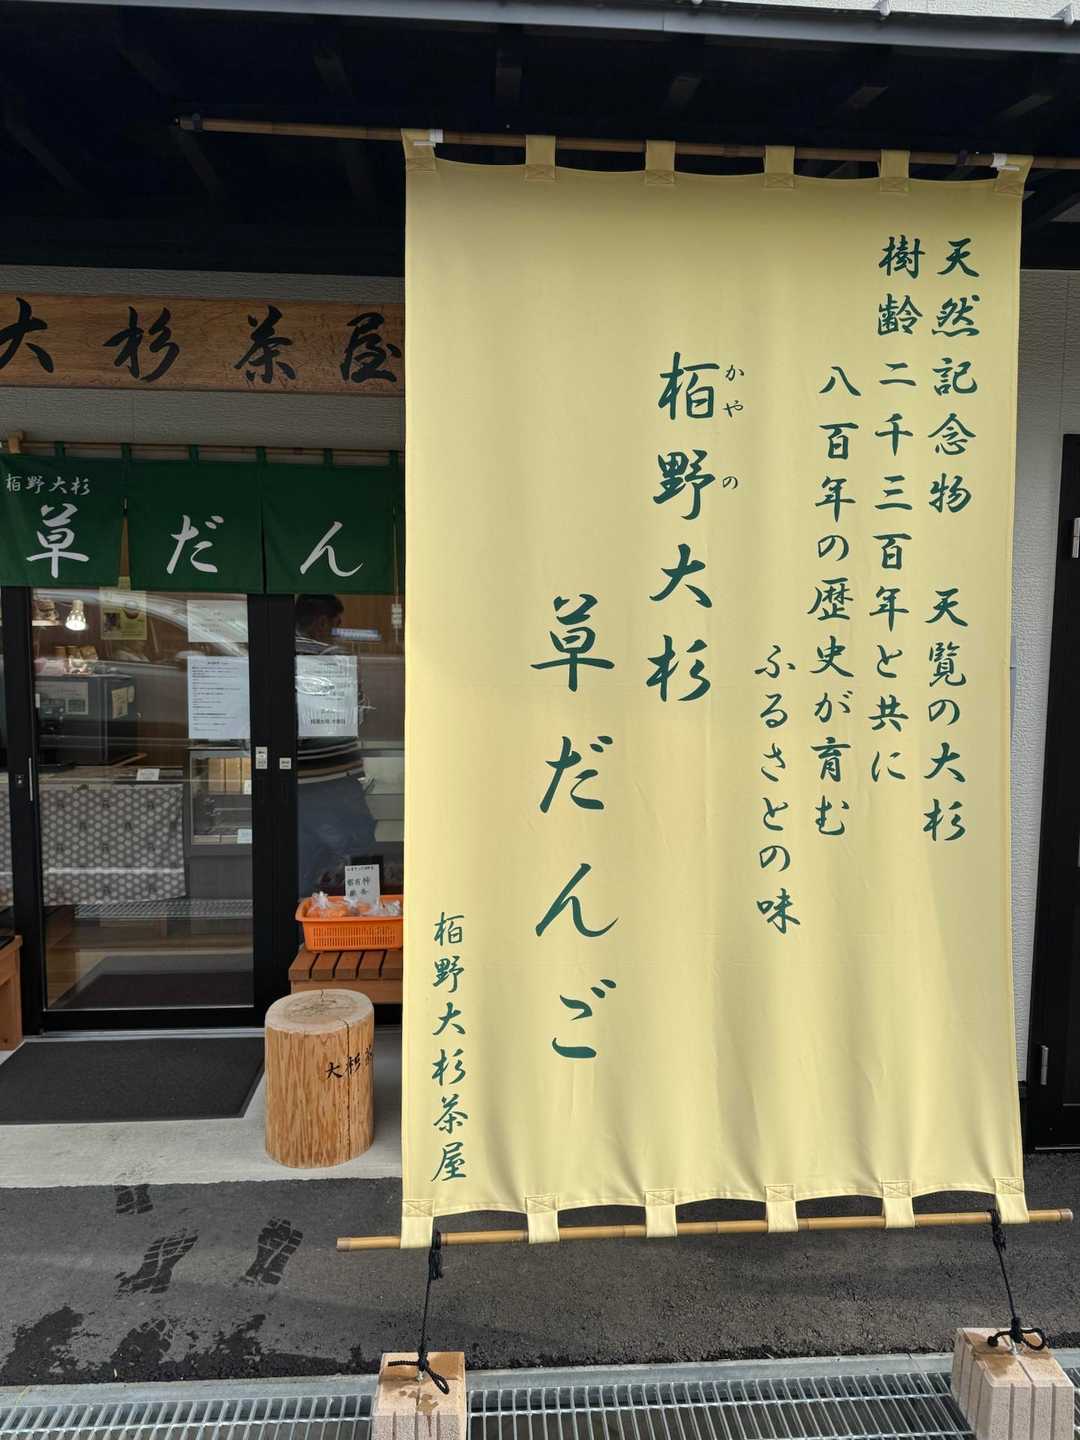 天然記念物　天覧の大杉
樹齢二千三百年と共に
八百年の歴史が育む
ふるさとの味
かやの
栢野大杉
草だんご
栢野大杉茶屋
大杉茶屋
栢野大杉
草だん
大杉茶